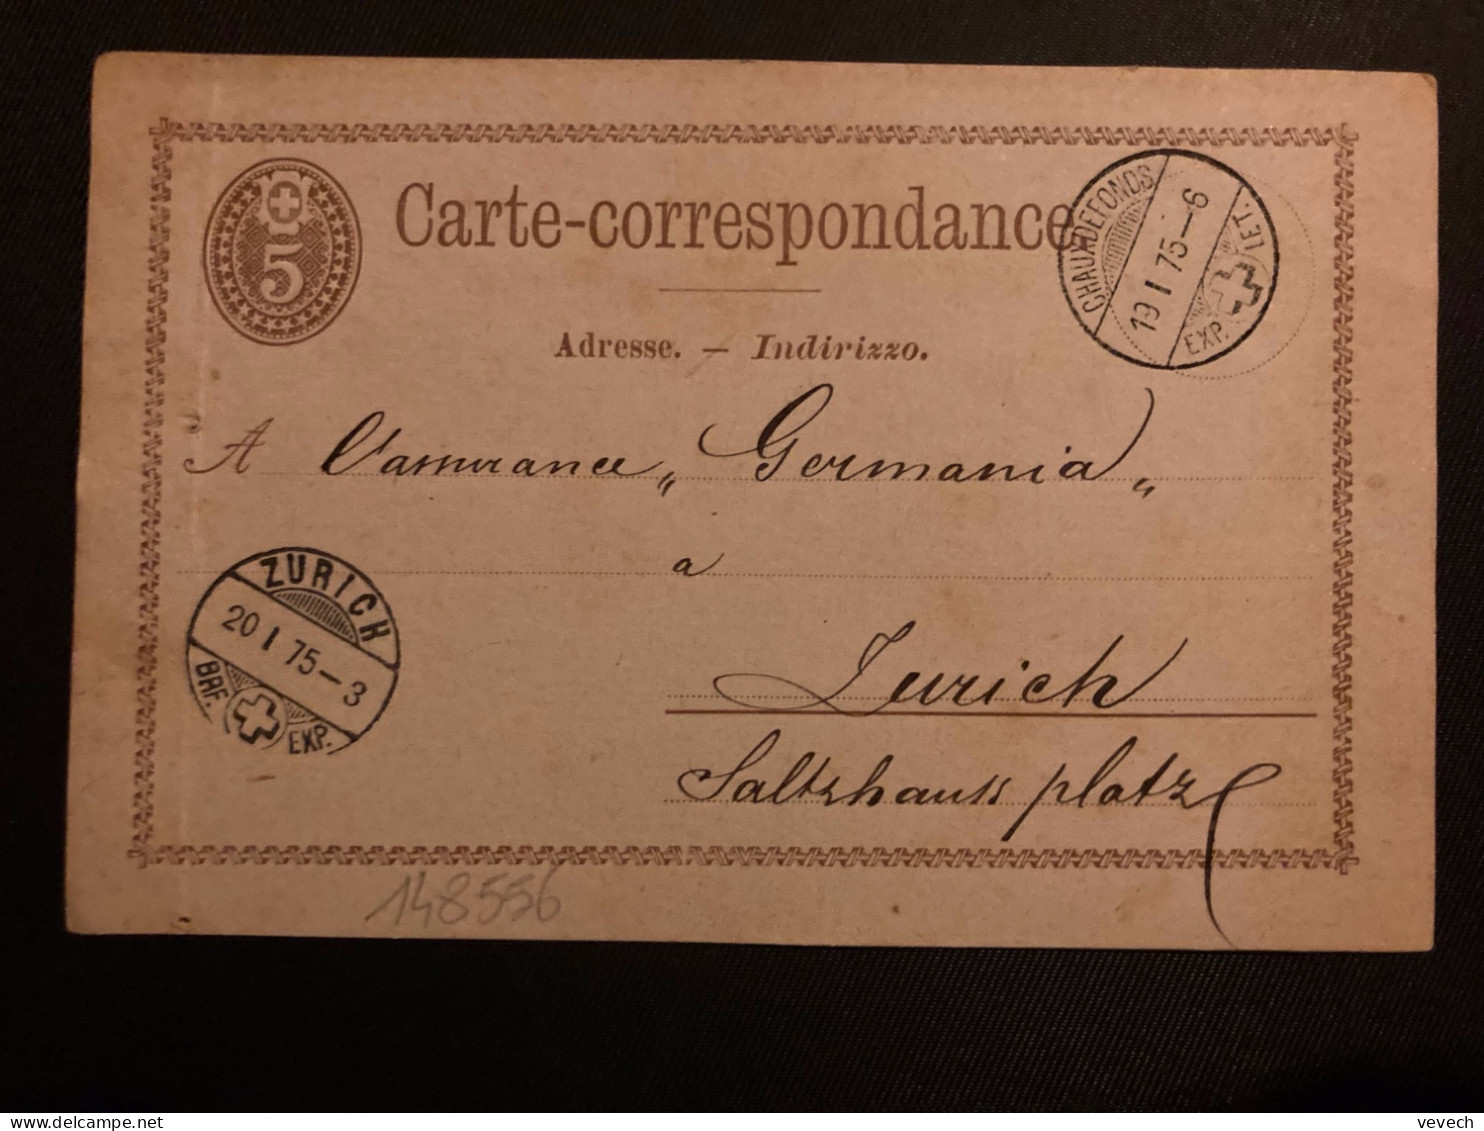 5
Carte-correspondance
CHAUXDEFONDS
19 I 75-6
EXP. LET.
Adresse. — Indirizzo.
A l'assurance „Germania„
a
ZURICH
20 I 75-3
BRF. EXP.
Zurich
Saltzhauss platz
148556
vevech